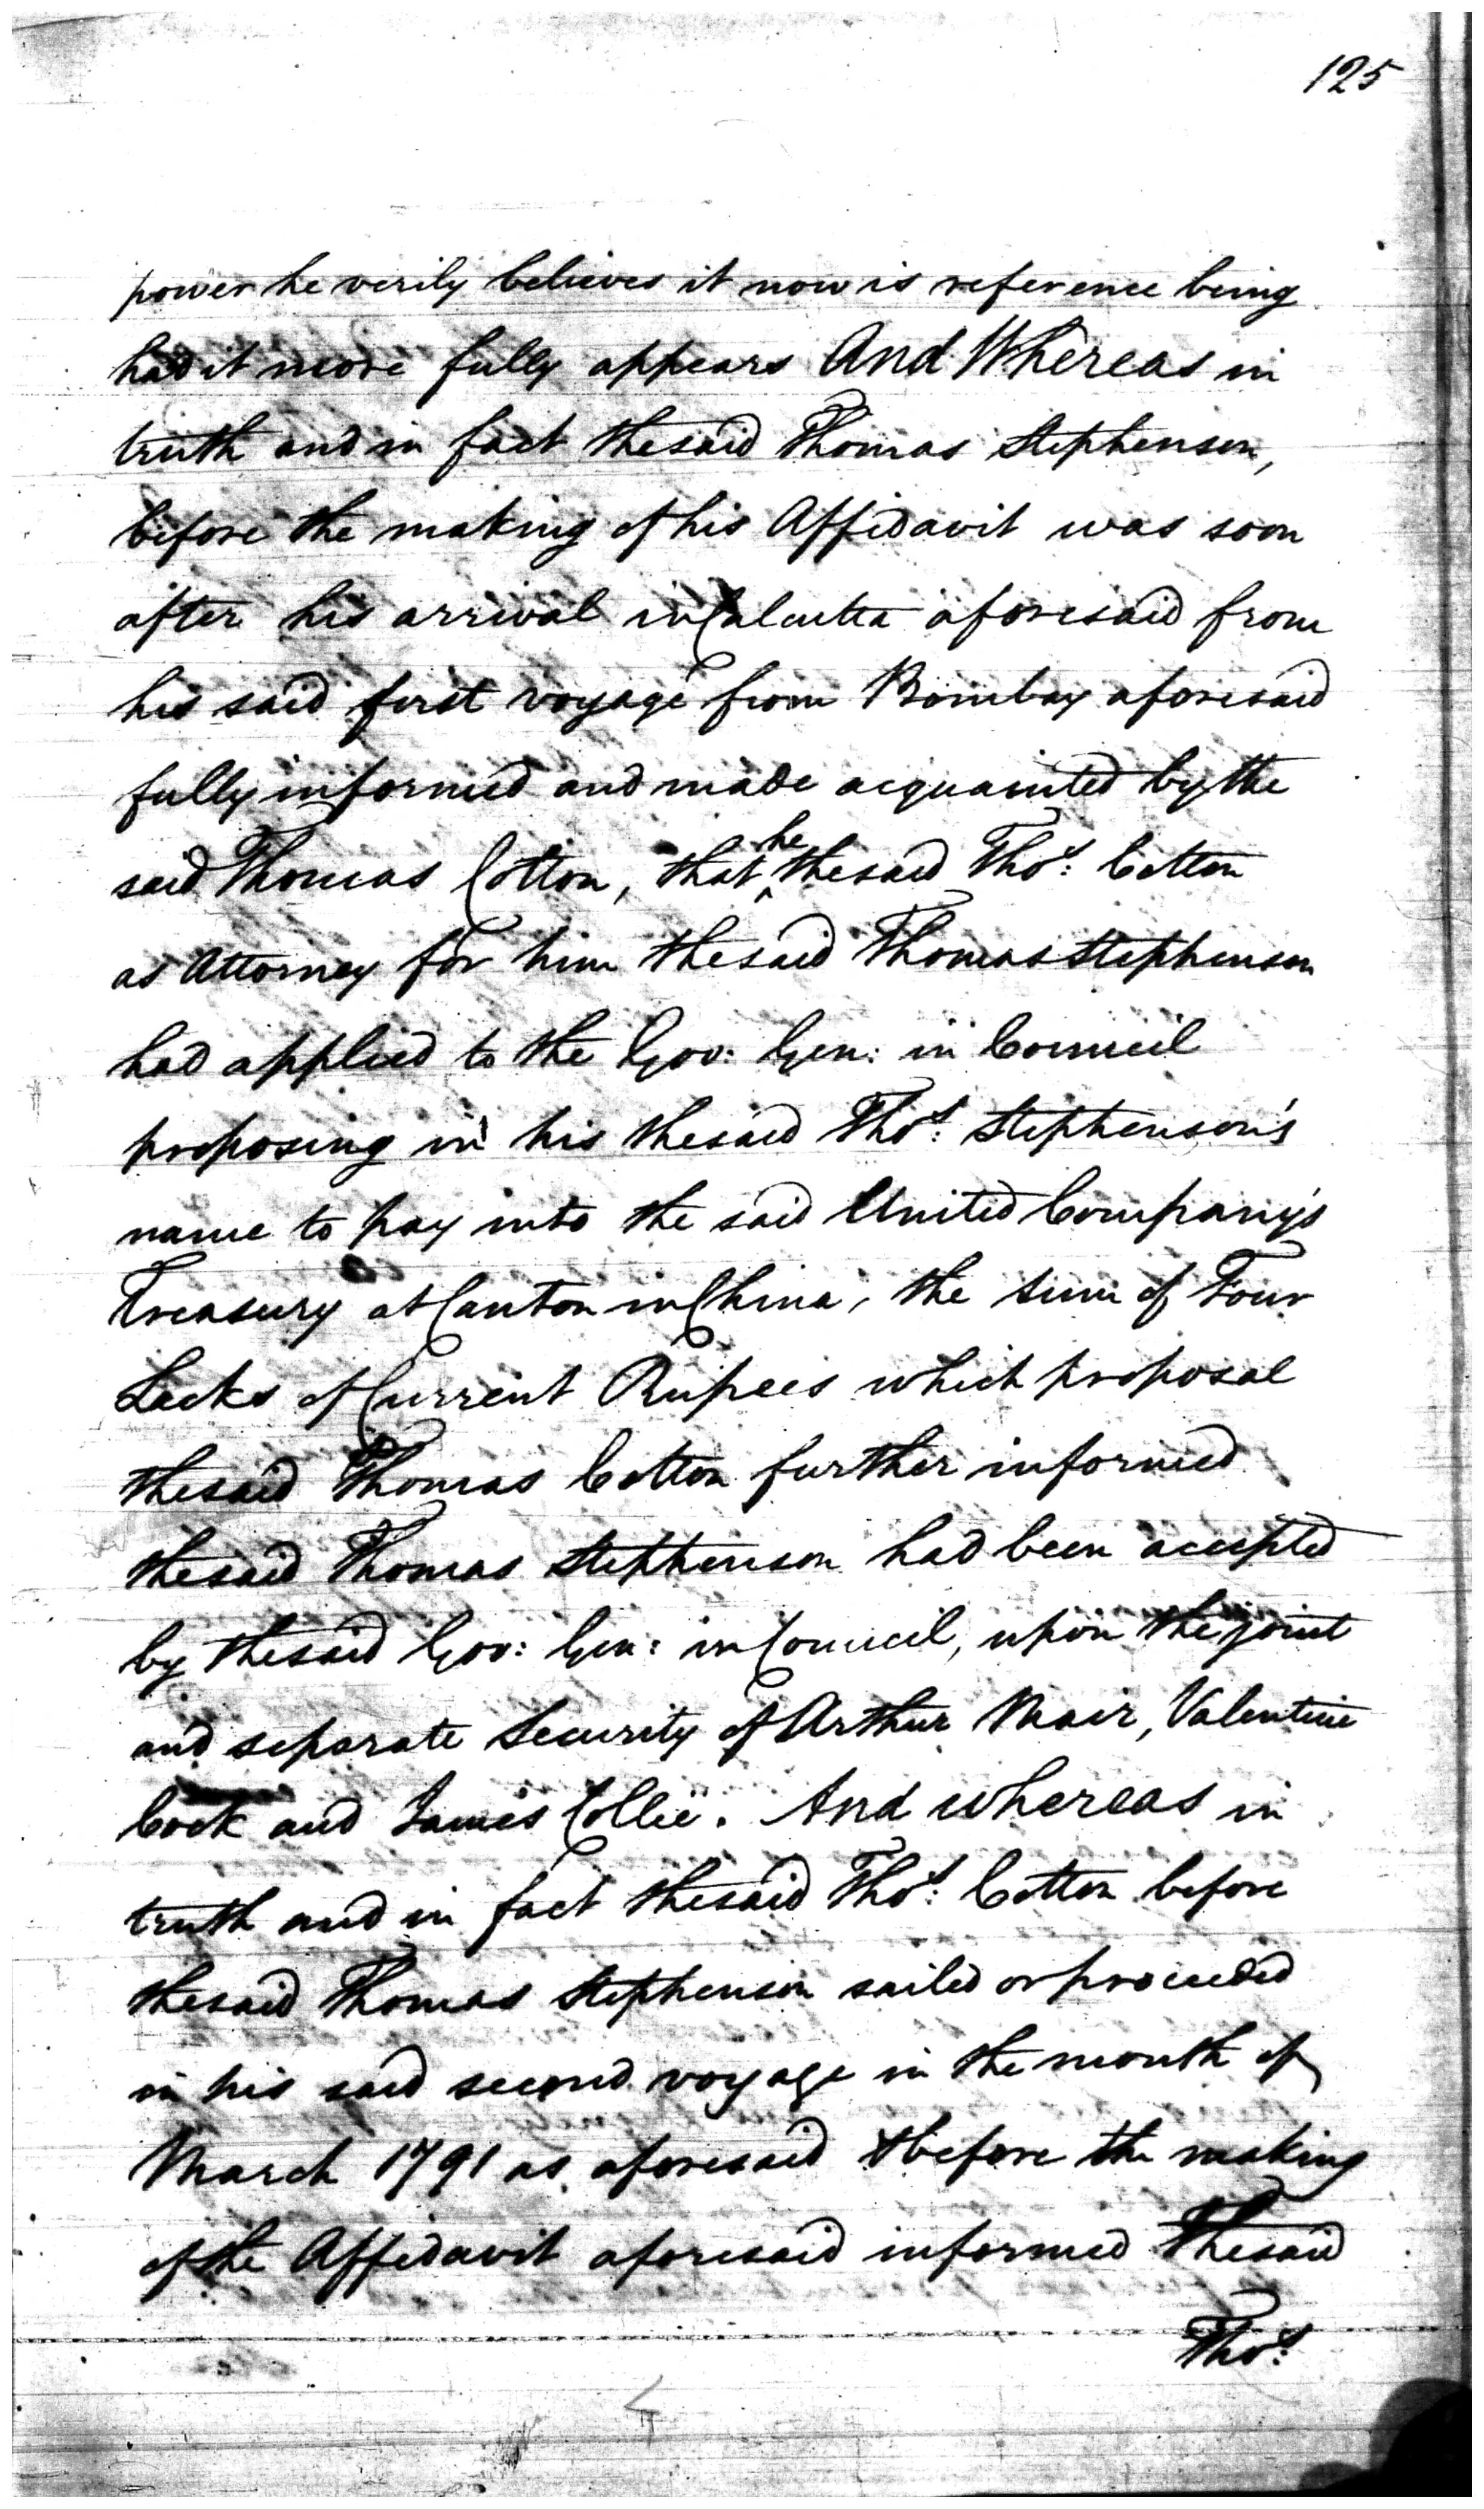 125
power he verily believes it now is reference being
had it more fully appears And Whereas in
truth and in fact the said Thomas Stephenson,
before the making of his Affidavit was soon
after his arrival in Calcutta aforesaid from
his said first voyage from Bombay aforesaid
fully informed and made acquainted by the
said Thomas Cotton, that he the said Thos: Cotton
as Attorney for him the said Thomas Stephenson
had applied to the Gov: Gen: in Council
proposing in his the said Thos: Stephenson's
name to pay into the said United Company's
Treasury at Canton in China, the sum of Four
Lacks of Current Rupees which proposal
the said Thomas Cotton further informed
the said Thomas Stephenson had been accepted
by the said Gov: Gen: in Council, upon the joint
and separate Security of Arthur Mair, Valentine
Cock and James Collie. And whereas in
truth and in fact the said Thos: Cotton before
the said Thomas Stephenson sailed or proceeded
in his said second voyage in the month of
March 1791 as aforesaid & before the making
of the Affidavit aforesaid informed the said
Thos: